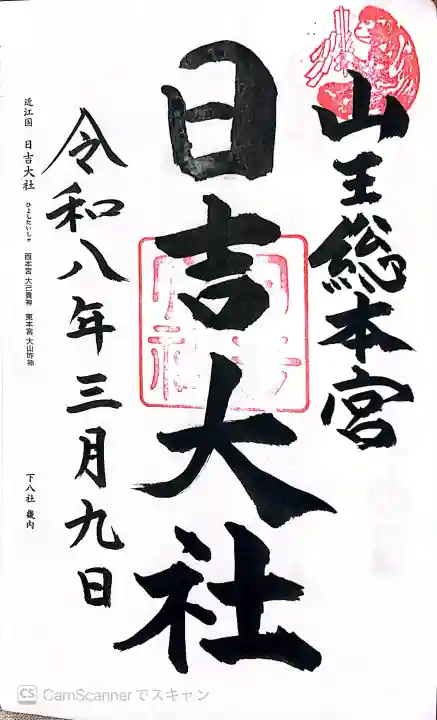 山王総本宮
日吉大社
令和八年三月九日
近江国 日吉大社 ひよしたいしゃ 西本宮 大己貴神 東本宮 大山咋神
下八社 畿内
CS CamScannerでスキャン